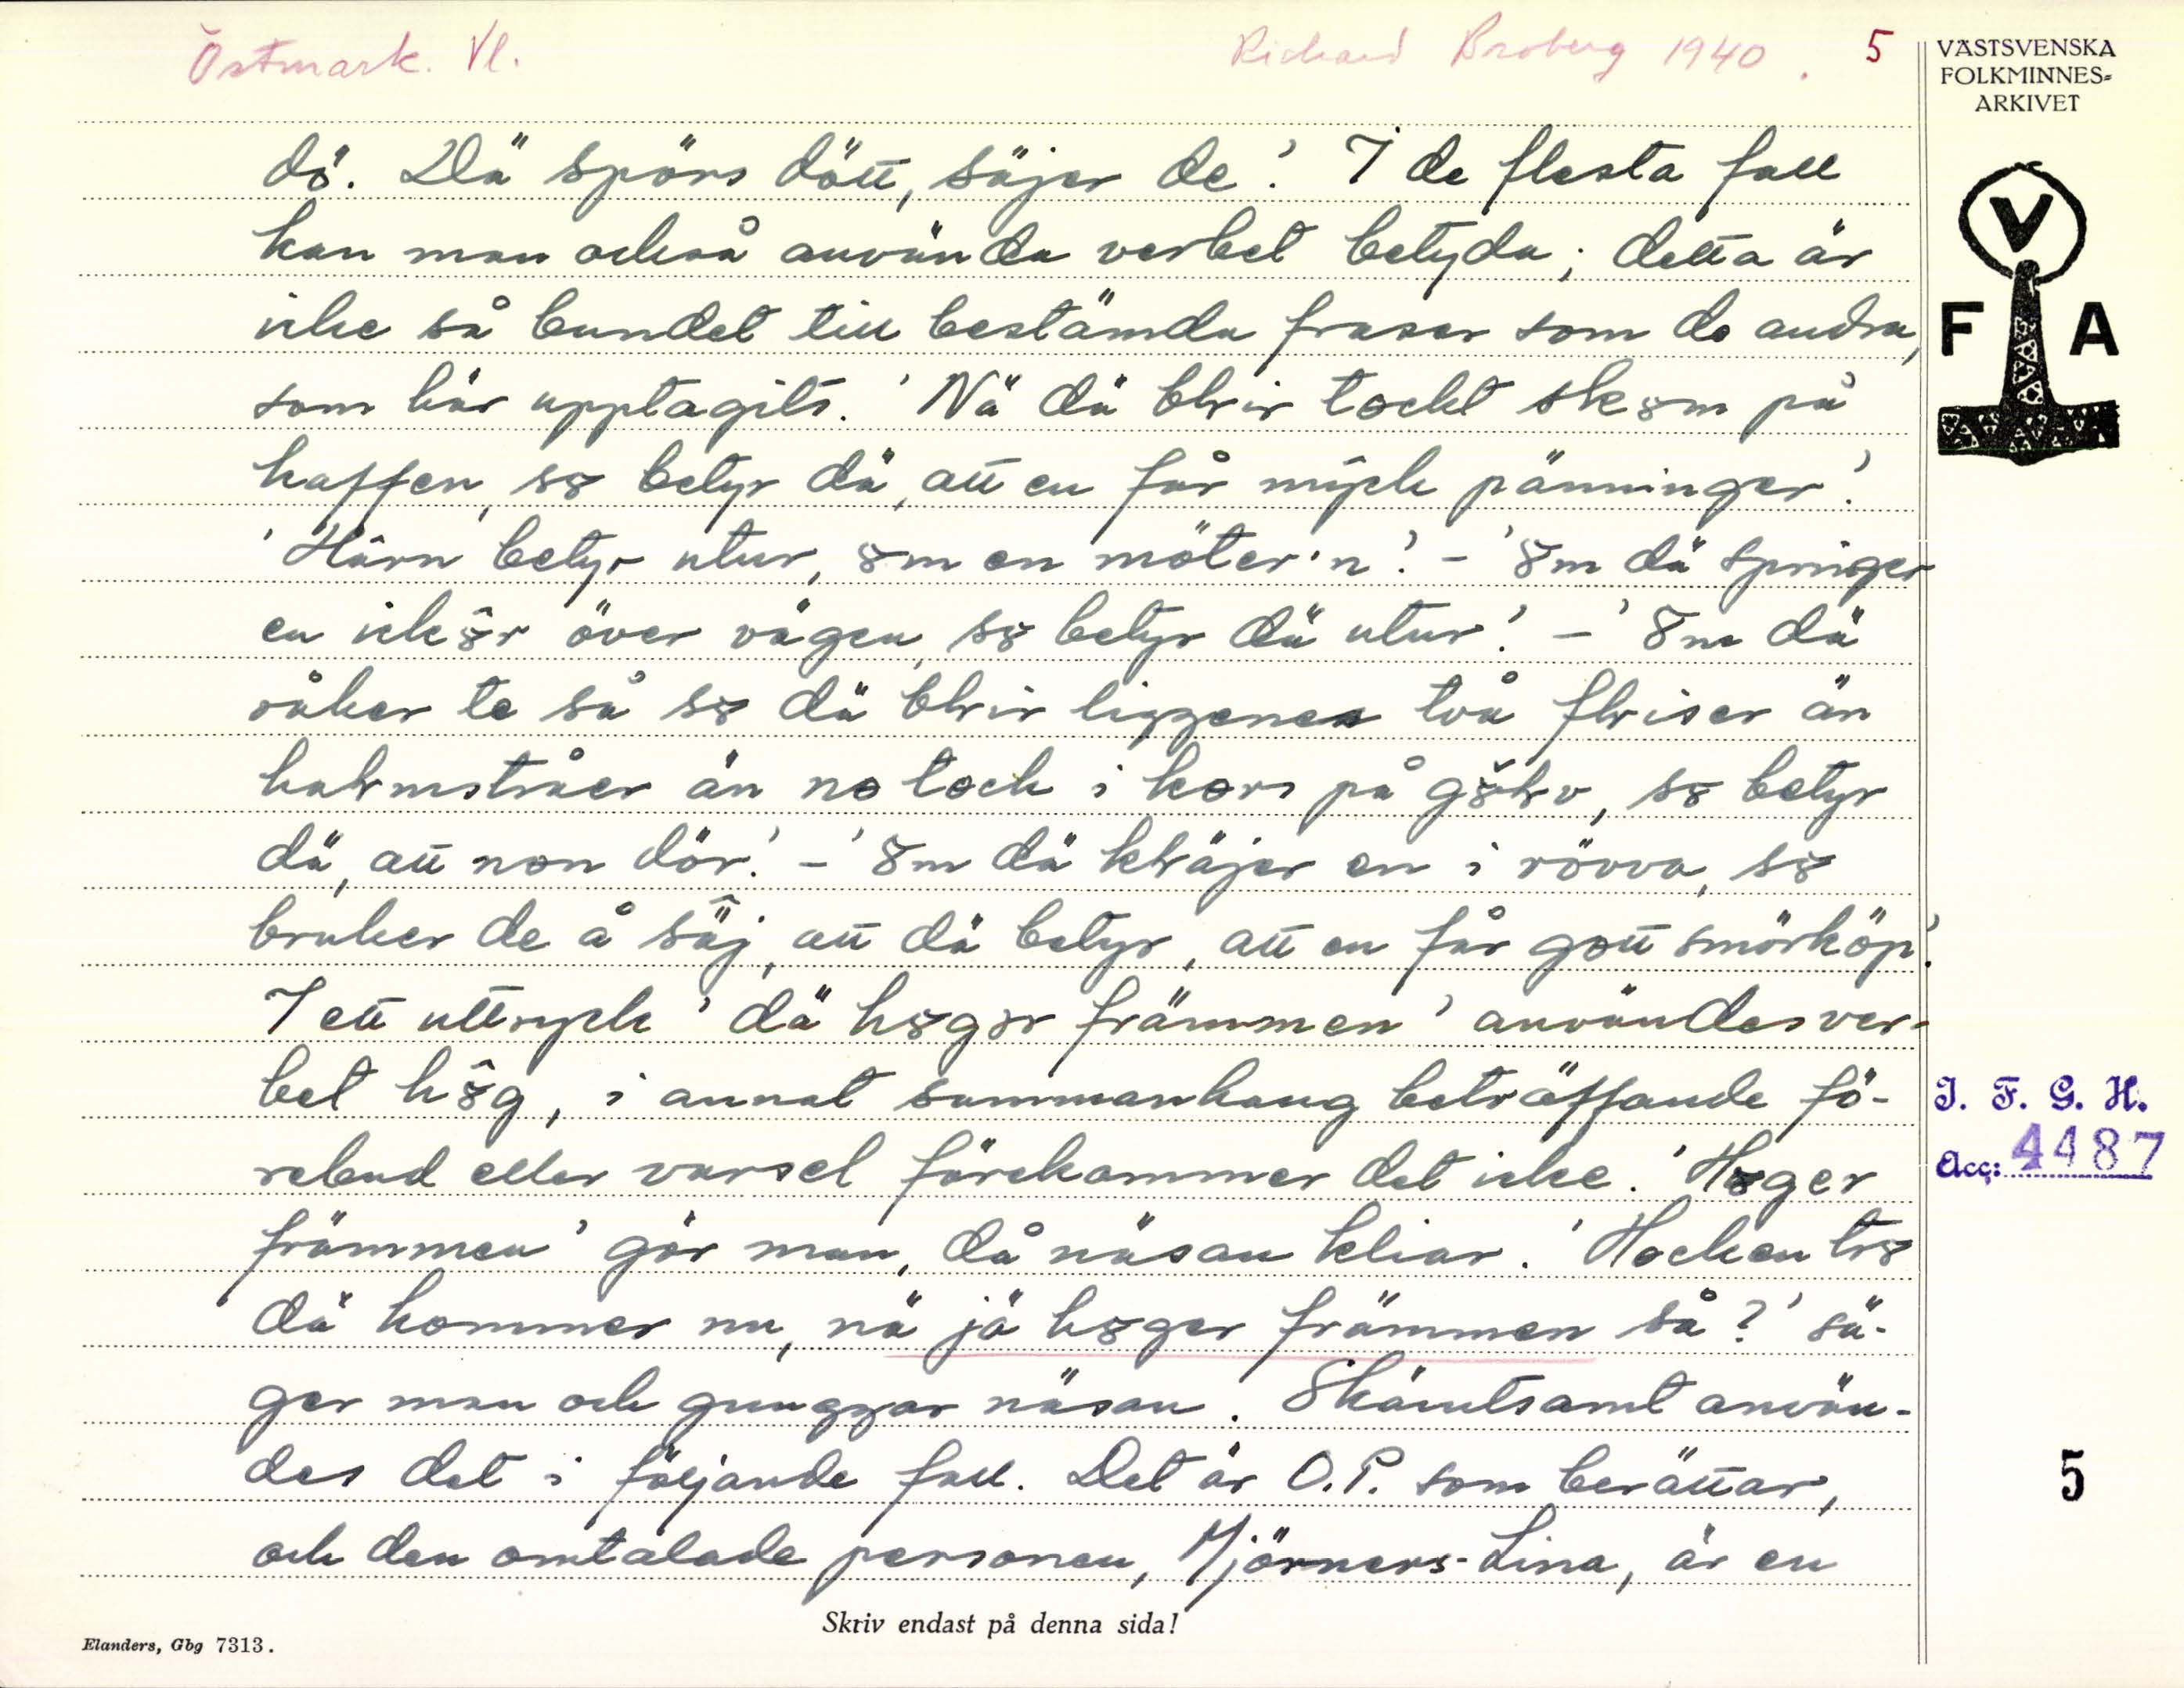 Östmark. Vl.
Richard Broberg 1940. 5
VÄSTSVENSKA
FOLKMINNES=
ARKIVET
V
F A
dö. Dä spörs dött, säjer de'. I de flesta fall
kan man också använda verbet betyda; detta är
icke så bundet till bestämda fraser som de andra,
som här upptagits. 'Nä dä blir tockt skȣm på
kaffen, sȣ betyr dä, att en får mýck pänninger'.
'Hârn betyr utur, ȣm en möter'n'. - 'Ȣm dä springer
en ickȣ̂r över vägen, sȣ betyr dä utur'. - 'Ȣm dä
råker te så sȣ dä blir liggenes två fliser än
halmstråer än no tock i kors på gȣ̆lv, sȣ betyr
dä, att non dör'. - 'Ȣm dä kläjer en i rövva, sȣ
bruker de å säj, att dä betyr, att en får gott smörköp'.
I ett uttryck 'dä hȣger främmen' användes ver-
bet hȣ̂g, i annat sammanhang beträffande fö-
rebud eller varsel förekommer det icke. 'Hȣger
främmen' gör man, då näsan kliar. 'Hocken trȣ
dä kommer nu, nä jä hȣger främmen så?' sä-
ger man och gnuggar näsan. Skämtsamt använ-
des det i följande fall. Det är O.P. som berättar,
och den omtalade personen, Mjörners-Lina, är en
I. F. G. H.
Acc: 4487
5
Skriv endast på denna sida!
Elanders, Gbg 7313.